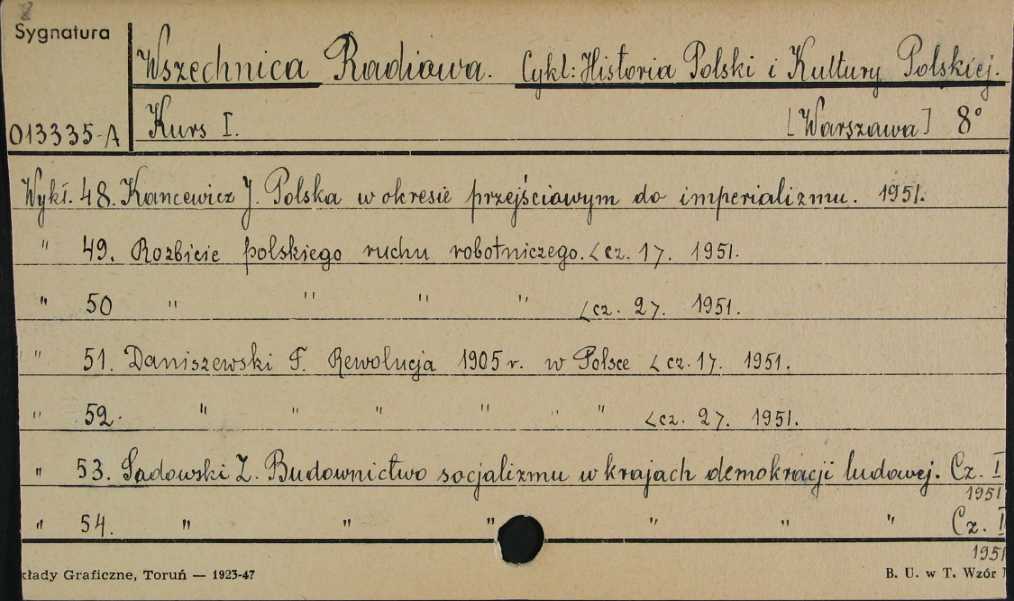 Sygnatura
Wszechnica Radiowa. Cykl: Historia Polski i Kultury Polskiej.
013335-A Kurs I. [Warszawa] 8°
Wykł. 48. Kancewicz J. Polska w okresie przejściowym do imperializmu. 1951.
" 49. Rozbicie polskiego ruchu robotniczego. <cz. 1>. 1951.
" 50 " " " " <cz. 2>. 1951.
" 51. Daniszewski T. Rewolucja 1905 r. w Polsce <cz. 1>. 1951.
" 52. " " " " " " <cz. 2>. 1951.
" 53. Sadowski Z. Budownictwo socjalizmu w krajach demokracji ludowej. Cz. I
1951
" 54. " " " " " " Cz. I
1951
kłady Graficzne, Toruń — 1923-47 B. U. w T. Wzór